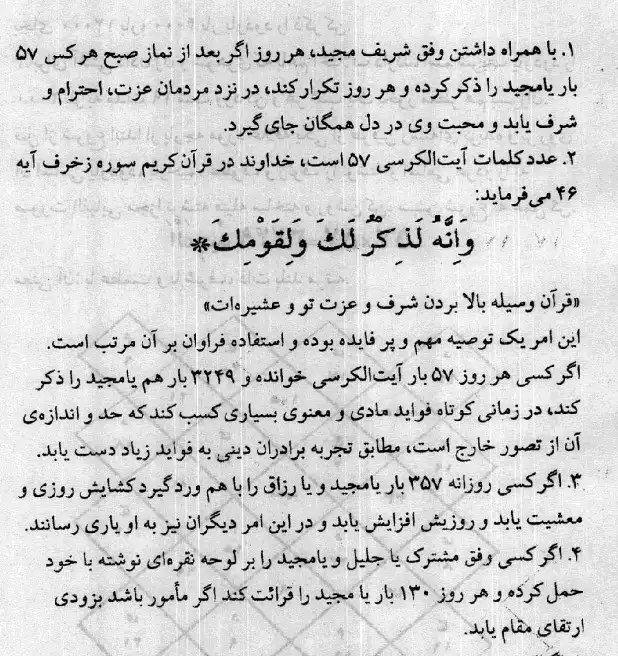 ۱. با همراه داشتن وفق شریف مجید، هر روز اگر بعد از نماز صبح هر کس ۵۷
بار یامجید را ذکر کرده و هر روز تکرار کند، در نزد مردمان عزت، احترام و
شرف یابد و محبت وی در دل همگان جای گیرد.
۲. عدد کلمات آیت‌الکرسی ۵۷ است، خداوند در قرآن کریم سوره زخرف آیه
۴۶ می‌فرماید:
وَاِنَّهُ لَذِكْرٌ لَكَ وَلِقَوْمِكَ*
«قرآن وسیله بالا بردن شرف و عزت تو و عشیره‌ات»
این امر یک توصیه مهم و پر فایده بوده و استفاده فراوان بر آن مرتب است.
اگر کسی هر روز ۵۷ بار آیت‌الکرسی خوانده و ۳۲۴۹ بار هم یامجید را ذکر
کند، در زمانی کوتاه فواید مادی و معنوی بسیاری کسب کند که حد و اندازه‌ی
آن از تصور خارج است، مطابق تجربه برادران دینی به فواید زیاد دست یابد.
۳. اگر کسی روزانه ۳۵۷ بار یامجید و یا رزاق را با هم ورد گیرد کشایش روزی و
معشیت یابد و روزیش افزایش یابد و در این امر دیگران نیز به او یاری رسانند.
۴. اگر کسی وفق مشترک یا جلیل و یامجید را بر لوحه نقره‌ای نوشته با خود
حمل کرده و هر روز ۱۳۰ بار یا مجید را قرائت کند اگر مأمور باشد بزودی
ارتقای مقام یابد.